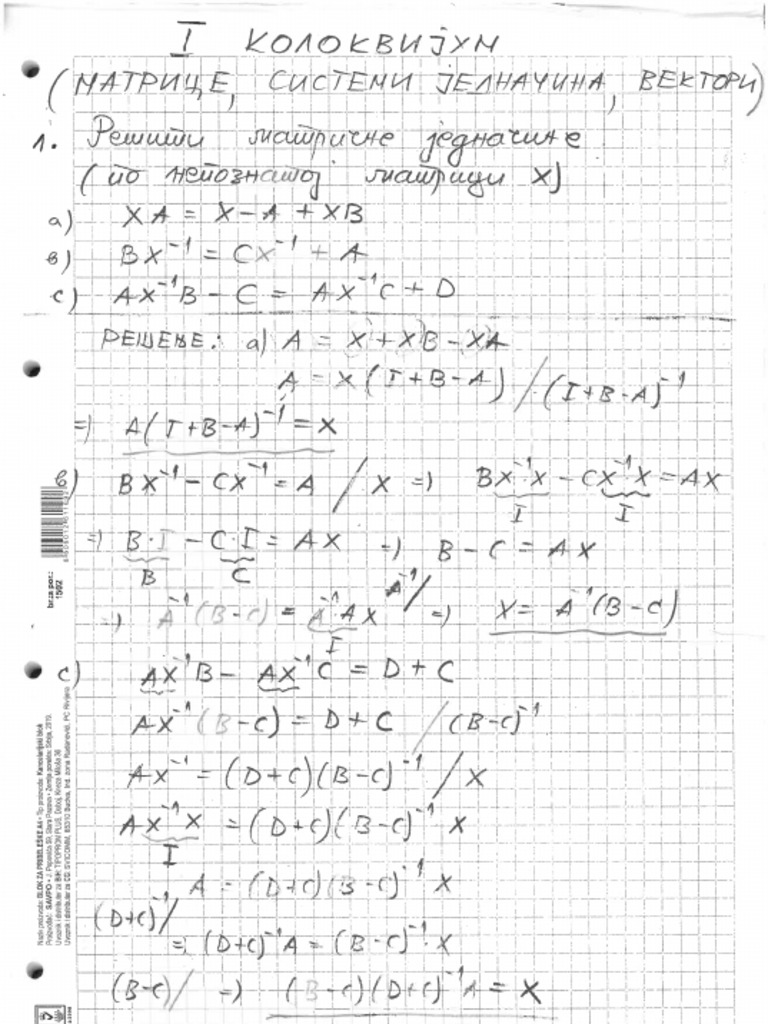 I КОЛОКВИЈУМ
(МАТРИЦЕ, СИСТЕМИ ЈЕДНАЧИНА, ВЕКТОРИ)
1. Решити матричне једначине
(по непознатој матрици X)
a) XA = X - A + XB
в) BX⁻¹ = CX⁻¹ + A
c) AX⁻¹B - C = AX⁻¹C + D
РЕШЕЊЕ: a) A = X + XB - XA
A = X (I + B - A) / (I + B - A)⁻¹
=) A(I + B - A)⁻¹ = X
в) BX⁻¹ - CX⁻¹ = A / X =) BX⁻¹X - CX⁻¹X = AX
I I
=) B·I - C·I = AX =) B - C = AX
B C
=) A⁻¹(B - C) = A⁻¹AX A⁻¹/ =) X = A⁻¹(B - C)
I
c) AX⁻¹B - AX⁻¹C = D + C
AX⁻¹(B - C) = D + C / (B - C)⁻¹
AX⁻¹ = (D + C)(B - C)⁻¹ / X
AX⁻¹X = (D + C)(B - C)⁻¹ X
I
A = (D + C)(B - C)⁻¹ X
(D+C)⁻¹/
=) (D+C)⁻¹A = (B - C)⁻¹·X
(B-C)/ =) (B - C)(D + C)⁻¹A = X
br.za por.:
1502